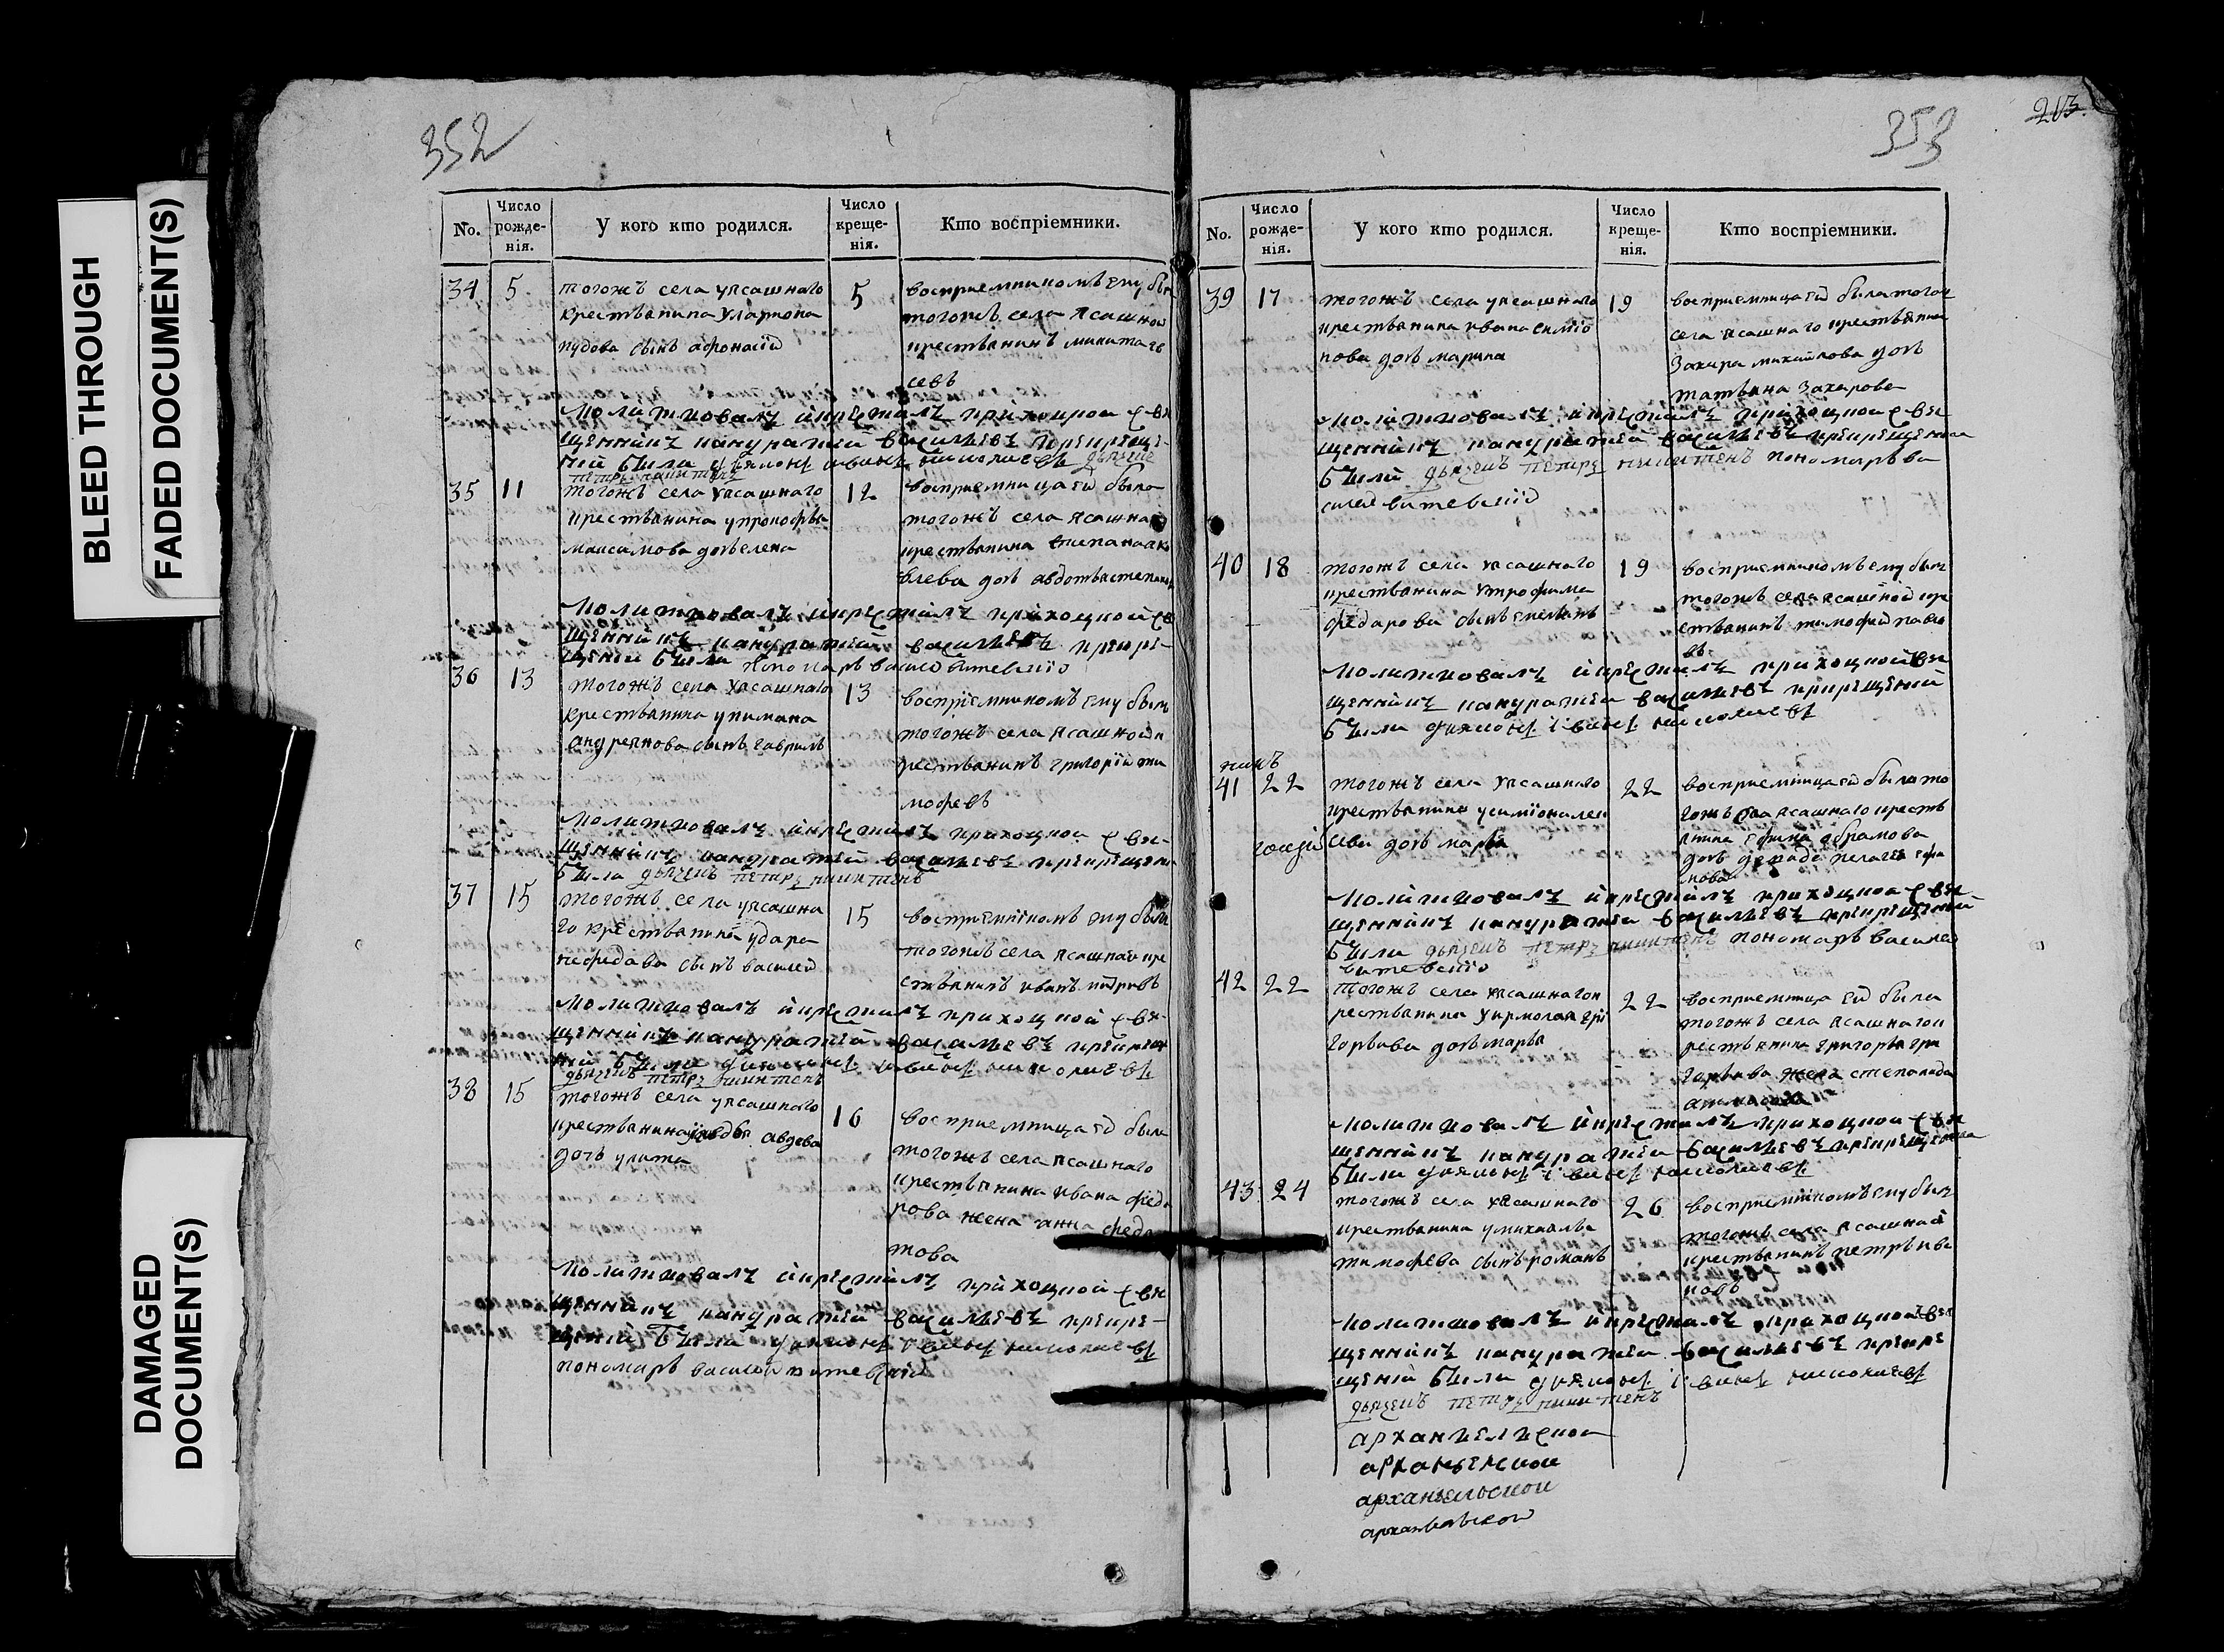 BLEED THROUGH
FADED DOCUMENT(S)
DAMAGED
DOCUMENT(S)
352
No.
Число рожде-нія.
У кого кто родился.
Число креще-нія.
Кто воспріемники.
34 5
тогожъ села уясашнаго
крестьянина улариона
пудова сынъ афонасій
5
восприемникомъ ему был
тогожъ села ясашной
крестьянинъ микита
севъ
молитвовалъ икрестилъ приходной свя
щенникъ кандратей васильевъ прикреще-
ніи были дьяконъ иванъ николаевъ дьячекъ
петръ никитенъ
35 11
тогожъ села уясашнаго
крестьянина упрокофья
максимова дочь елена
12
восприемница ей была
тогожъ села ясашна
крестьянина степана
влева дочь авдотья степано
молитвовалъ икрестилъ приходной св
щенникъ кандратей васильевъ прикре-
щеніи были пономарь василей витевскій
36 13
тогожъ села уясашнаго
крестьянина
андреянова сынъ гаврилъ
13
восприемникомъ ему былъ
тогожъ села ясашной к
рестьянинъ григорій ти
мофевъ
молитвовалъ икрестилъ приходной свя-
щенникъ кандратей васильевъ прикрещени
были дьячекъ петръ никитенъ
37 15
тогожъ села уясашна
го крестьянина
нефедава сынъ василей
15
восприемникомъ ему былъ
тогожъ села ясашнай кре
стьянинъ иванъ
молитвовалъ икрестилъ приходной свя-
щенникъ кандратей васильевъ прикреще
ніи были дьяконъ иванъ николаевъ
дьячекъ петръ никитенъ
38 15
тогожъ села уясашнаго
крестьянина авдева
дочь улита
16
восприемница ей была
тогожъ села ясашнаго
крестьянина ивана федо
рова жена анна
това
молитвовалъ икрестилъ приходной свя
щенникъ кандратей васильевъ прикре-
щеніи были дьяконъ иванъ николаевъ
пономарь василей витевскій
353
213.
No.
Число рожде-нія.
У кого кто родился.
Число креще-нія.
Кто воспріемники.
39 17
тогожъ села уясашнаго
крестьянина ивана симіо
нова дочь марина
19
восприемница ей была тогож
села ясашнаго крестьянина
Захара михайлова дочь
татьяна Захарова
молитвовалъ икрестилъ приходной свя
щенникъ кандратей васильевъ прикрещеніи
были дьячекъ петръ никитенъ пономарь ва
силей витевскій
40 18
тогожъ села уясашнаго
крестьянина утрофима
федарова сынъ емельянъ
19
восприемникомъ ему былъ
тогожъ села ясашной кре
стьянинъ тимофей павло
въ
молитвовалъ икрестилъ приходной свя
щенникъ кандратей васильевъ прикрещеніи
были дьяконъ иванъ николаевъ
41 22
тогожъ села уясашнаго
крестьянина усиміона
сева дочь марья
22
восприемница ей была то
гожъ села ясашнаго кресть
янина ефима абрамова
дочь пелагея ефи
мова
молитвовалъ икрестилъ приходной свя
щенникъ кандратей васильевъ прикрещеніи
были дьячекъ петръ никитенъ пономарь василей
витевскій
42 22
тогожъ села уясашнаго к
рестьянина уярмолая гри
горьева дочь марья
22
восприемница ей была
тогожъ села ясашнаго к
рестьянина григорья гри
горьева жена степанида
молитвовалъ икрестилъ приходной свя
щенникъ кандратей васильевъ прикрещеніи
были дьяконъ иванъ николаевъ
43 24
тогожъ села уясашнаго
крестьянина умихаилы
тимофева сынъ романъ
26
восприемникомъ ему былъ
тогожъ села ясашной
крестьянинъ петръ ива
новъ
молитвовалъ икрестилъ приходной свя
щенникъ кандратей васильевъ прикре
щеніи были дьяконъ иванъ николаевъ
дьячекъ петръ никитенъ
архангельской
архангельской
архангельской
архангельской